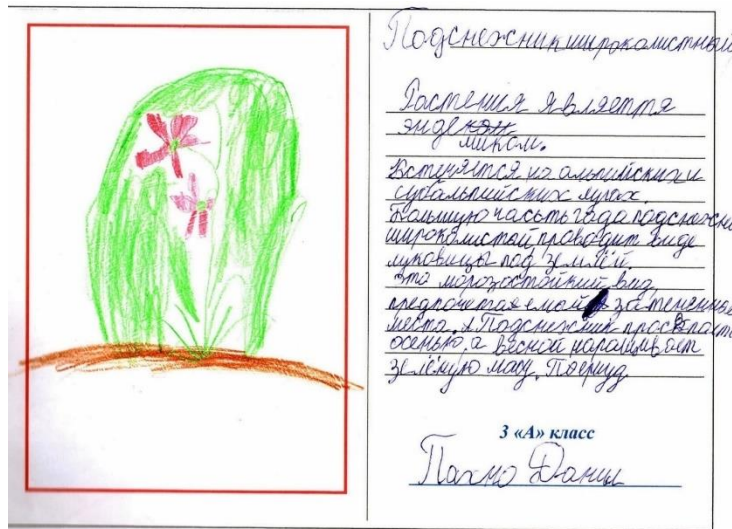 Подснежник широколистный
Растения является
энде
миком.
Встечяется на альпийских и
субальпийских лугах.
Большую часть года подснежни
широколистой проводит виде
луковицы под землёй.
Это морозостойкий вид,
затененные
места. Подснежник
осенью, а весной наращивает
зелёную масу.
3 «А» класс
Пахно Данил